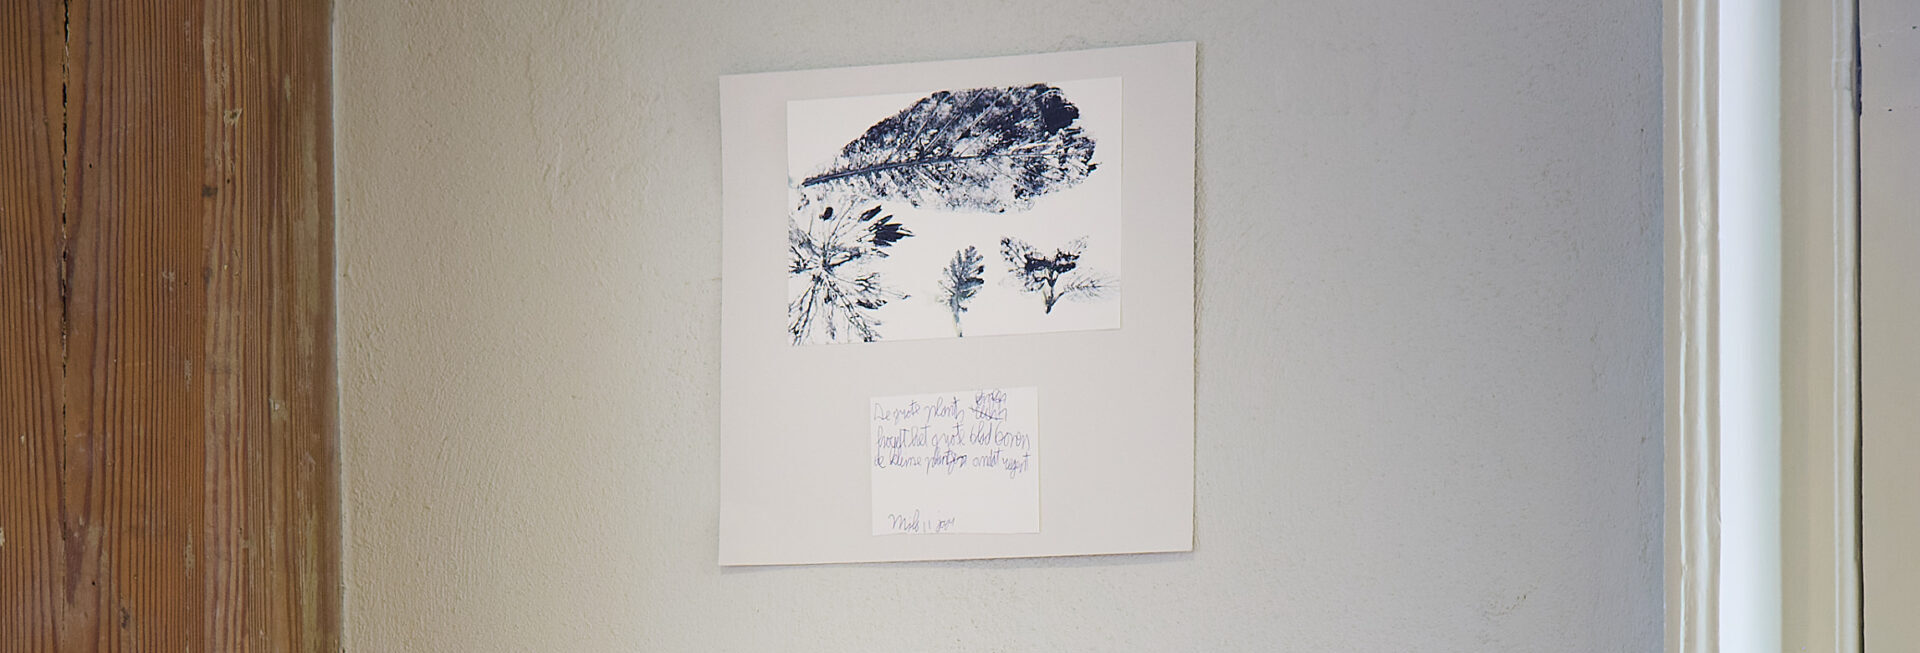 De grote plant
houdt het grote blad boven
de kleine plantjes omdat regent
Milo 11 jaar